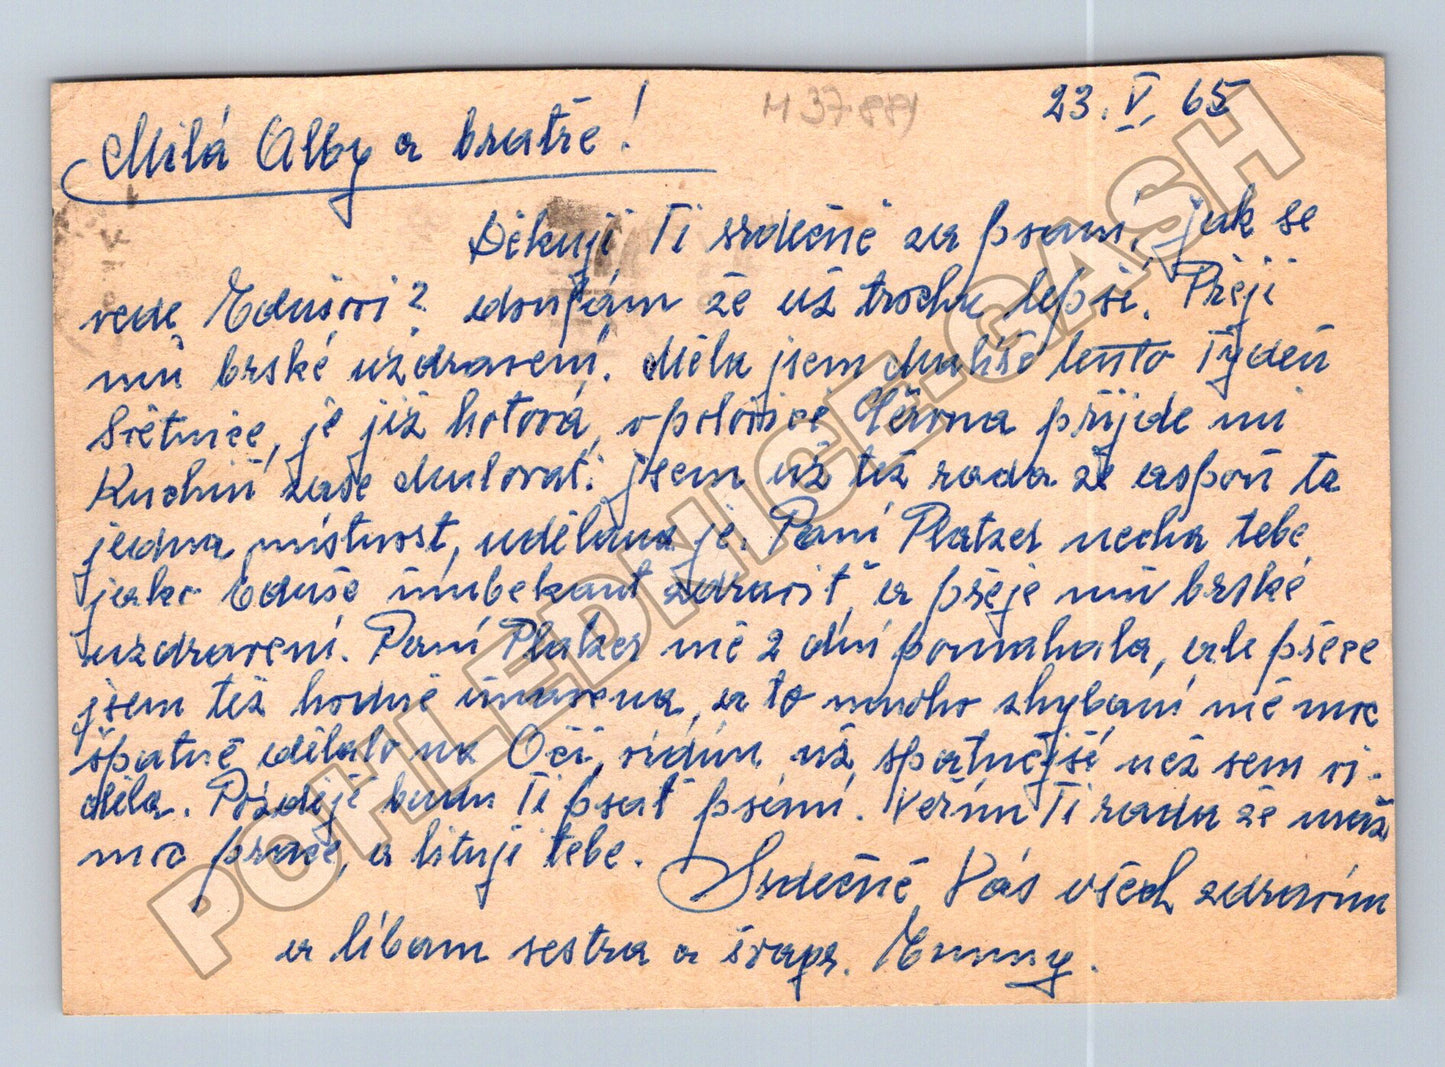 M 37-881
23. V. 65
Milá Alby a bratře!
Děkuji Ti srdečně za psaní, jak se
vede Edušovi? doufám že už trochu lepší. Přeji
mu brské uzdravení. Měla jsem tento Týden
Světnice, je již hotová, v polovice června přijde mi
Kuchiň zase malovat. jsem už též rada že aspoň ta
jedna místnost, udělaná je. Paní Platzer necha tebe,
jako Eduše únbekant zdravit, a přeje mu brské
uzdravení. Paní Platzer mě 2 dní pomahala, ale přece
jsem též hodně unavena, a to mnoho shybání mě moc
špatně dělalo na Oči, vidím už špatnějsé než sem vi-
děla. Pozděje budu Ti psat psaní. Věřím Ti rada že máš
moc práce, a lituji tebe. Srdečně Vás všech zdravím
a líbam sestra a švagr. Emmy.
POHLEDNICE.CASH